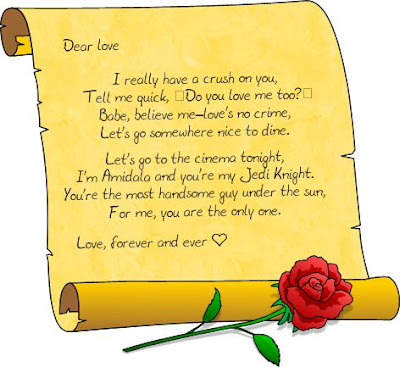 Dear love
I really have a crush on you,
Tell me quick, □Do you love me too?□
Babe, believe me—love's no crime,
Let's go somewhere nice to dine.
Let's go to the cinema tonight,
I'm Amidala and you're my Jedi Knight.
You're the most handsome guy under the sun,
For me, you are the only one.
Love, forever and ever ♡